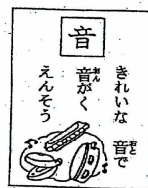 音
きれいな 音で
音がく
えんそう